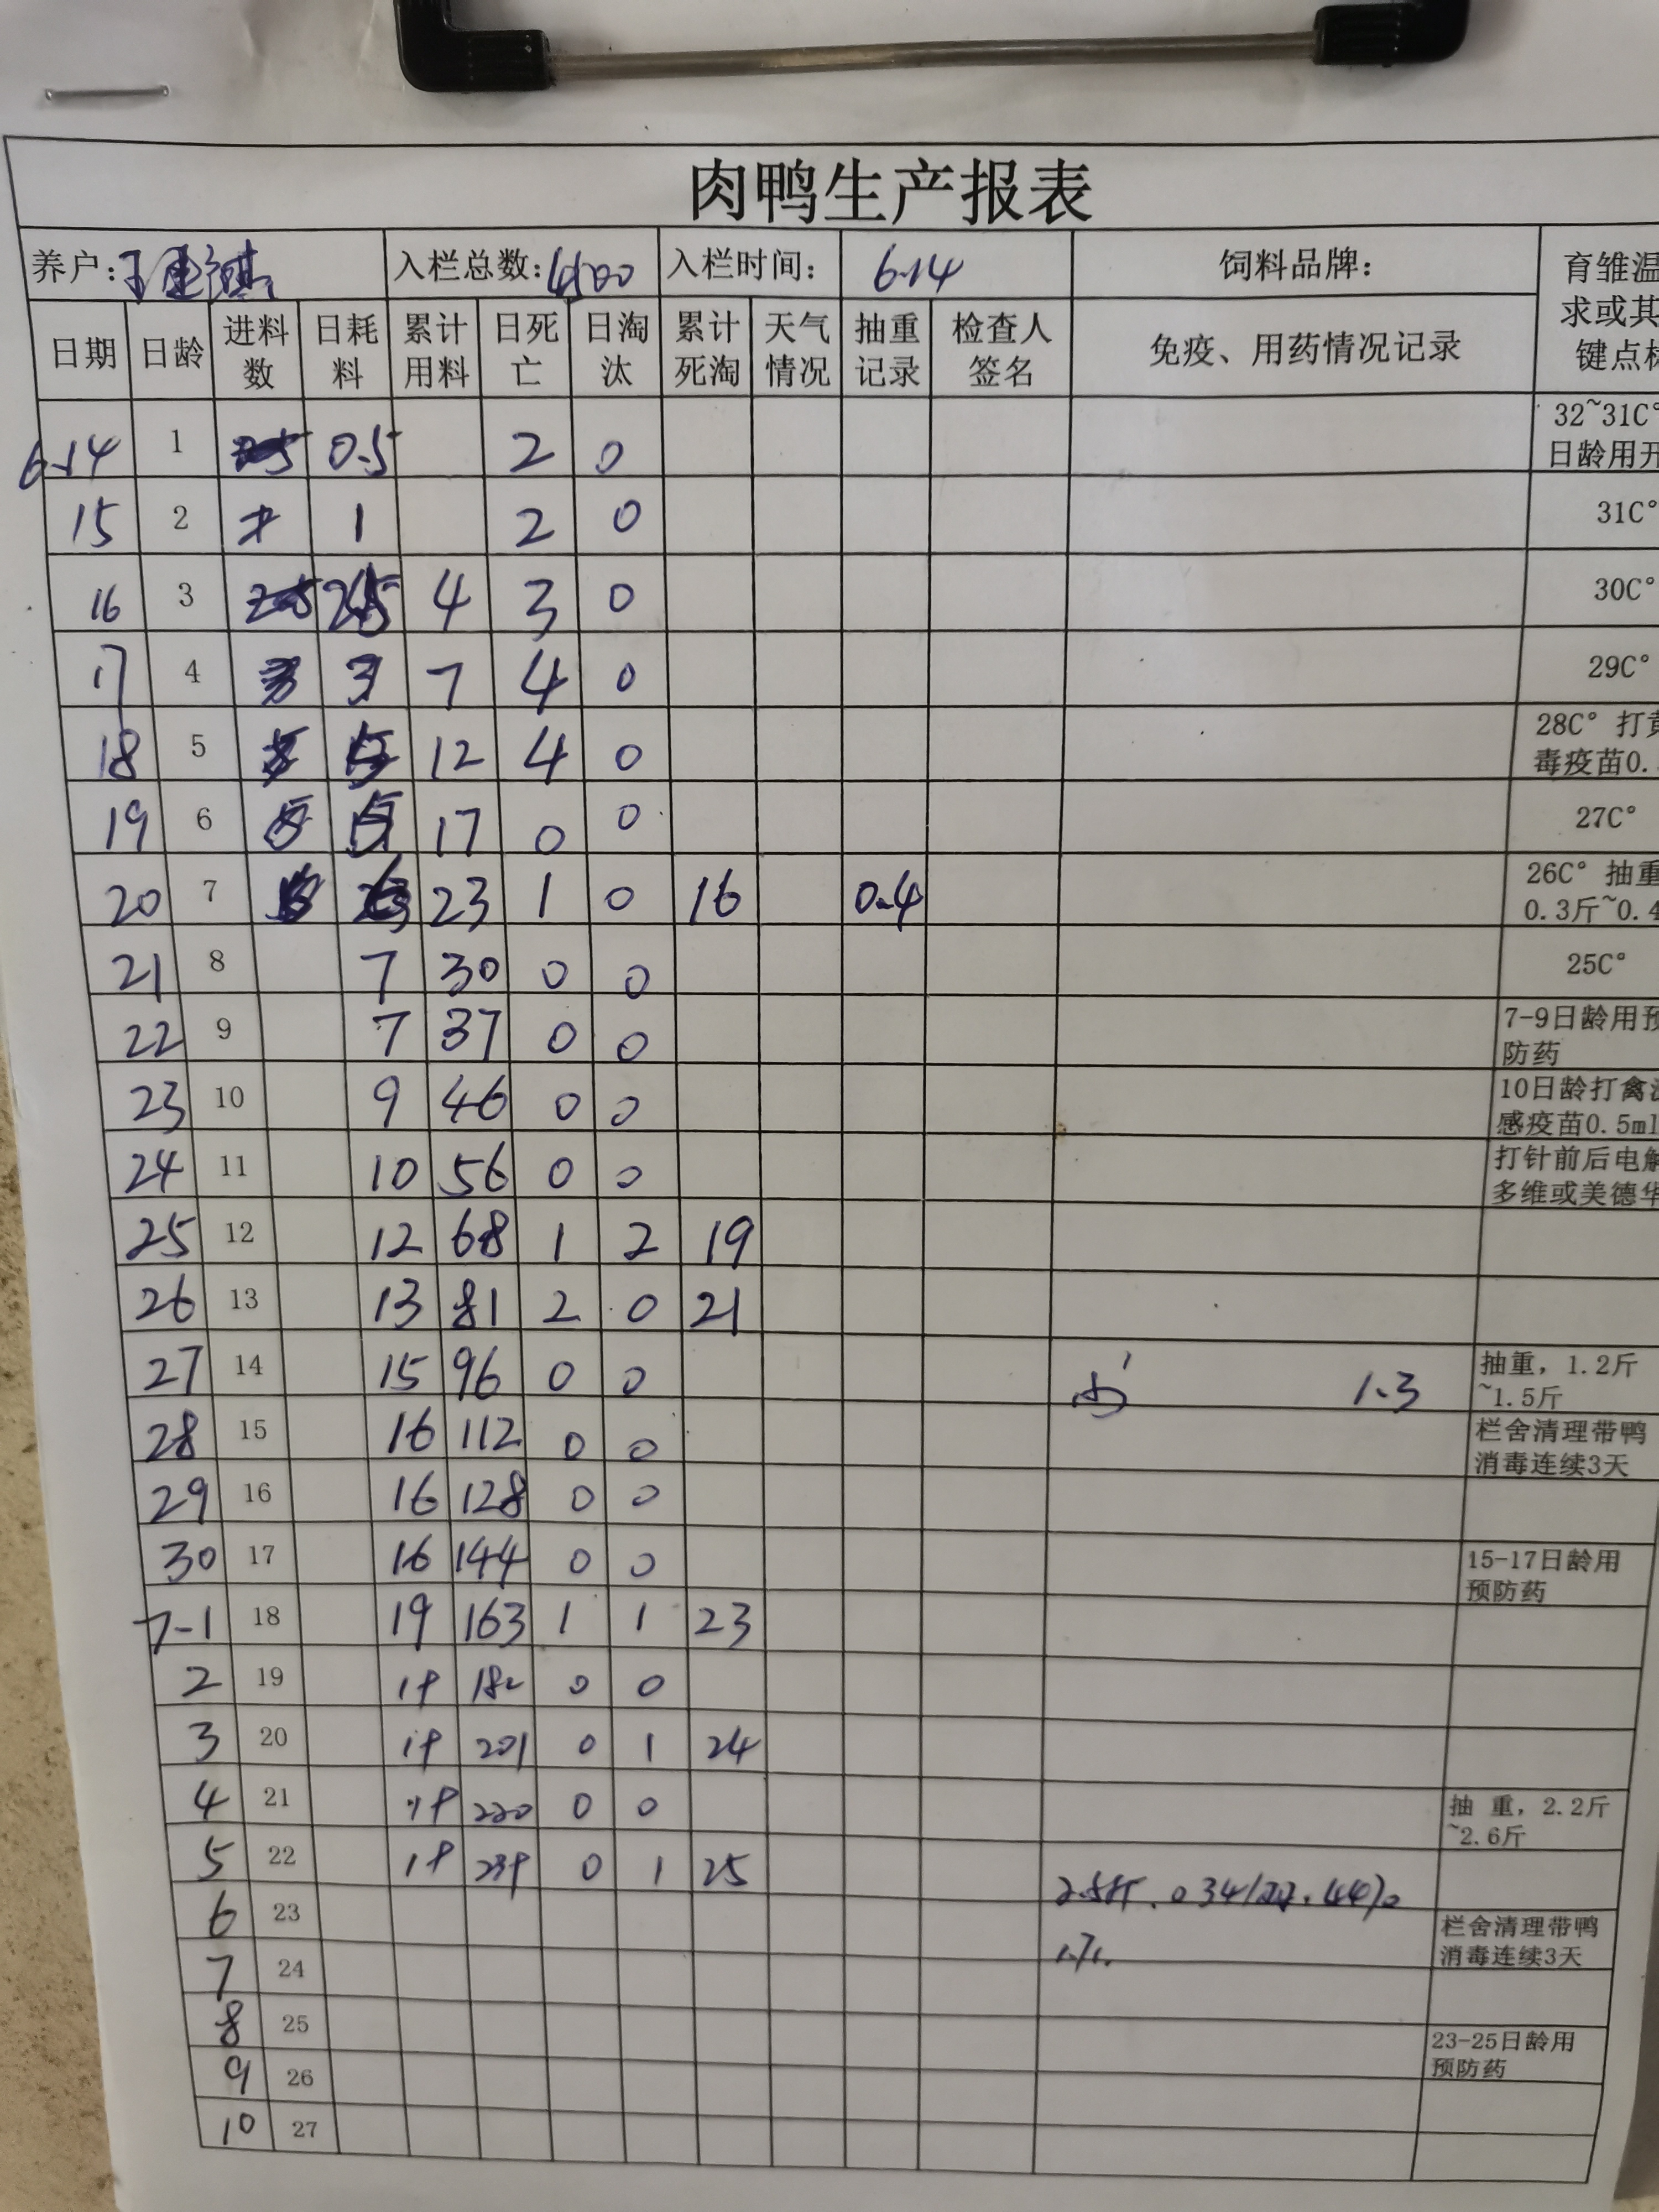 肉鸭生产报表
养户: 入栏总数: 入栏时间: 6-14 饲料品牌: 育雏温
求或其
键点
日期 日龄 进料数 日耗料 累计用料 日死亡 日淘汰 累计死淘 天气情况 抽重记录 检查人签名 免疫、用药情况记录
6-14 1 0.5 2 0 32~31C° 日龄用开
15 2 1 2 0 31C°
16 3 4 3 0 30C°
17 4 3 7 4 0 29C°
18 5 5 12 4 0 28C° 打黄 毒疫苗0.
19 6 5 17 0 0 27C°
20 7 6 23 1 0 16 0.4 26C° 抽重 0.3斤~0.4
21 8 7 30 0 0 25C°
22 9 7 37 0 0 7-9日龄用预防药
23 10 9 46 0 0 10日龄打禽流感疫苗0.5ml
24 11 10 56 0 0 打针前后电解多维或美德华
25 12 12 68 1 2 19
26 13 13 81 2 0 21
27 14 15 96 0 0 1.3 抽重，1.2斤~1.5斤
28 15 16 112 0 0 栏舍清理带鸭消毒连续3天
29 16 16 128 0 0
30 17 16 144 0 0 15-17日龄用预防药
7-1 18 19 163 1 1 23
2 19 19 182 0 0
3 20 19 201 0 1 24
4 21 19 220 0 0 抽 重，2.2斤~2.6斤
5 22 19 239 0 1 25 2.5斤
6 23 栏舍清理带鸭消毒连续3天
7 24
8 25 23-25日龄用预防药
9 26
10 27